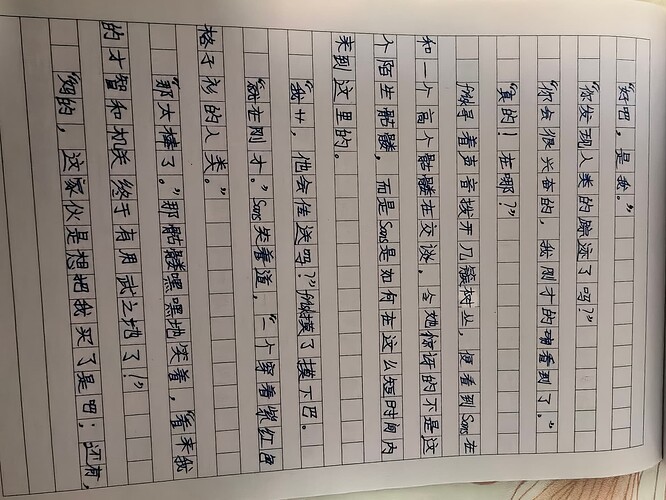 “好吧，是我。”
“你发现人类的踪迹了吗？”
“你会很兴奋的，我刚才的确看到了。”
“真的！在哪？”
frisk寻着声音扒开几簇树丛，便看到Sans在
和一个高个骷髅在交谈。令她惊讶的不是这
个陌生骷髅，而是Sans是如何在这么短时间内
来到这里的。
“我艹，他会传送吗？”frisk摸了摸下巴。
“就在刚才。”Sans笑着道，“一个穿着紫红色
格子衫的人类。”
“那太棒了。”那骷髅嘿嘿地笑着，“看来我
的才智和机关终于有用武之地了！”
“妈的，这家伙是想把我买了是吧；还有，